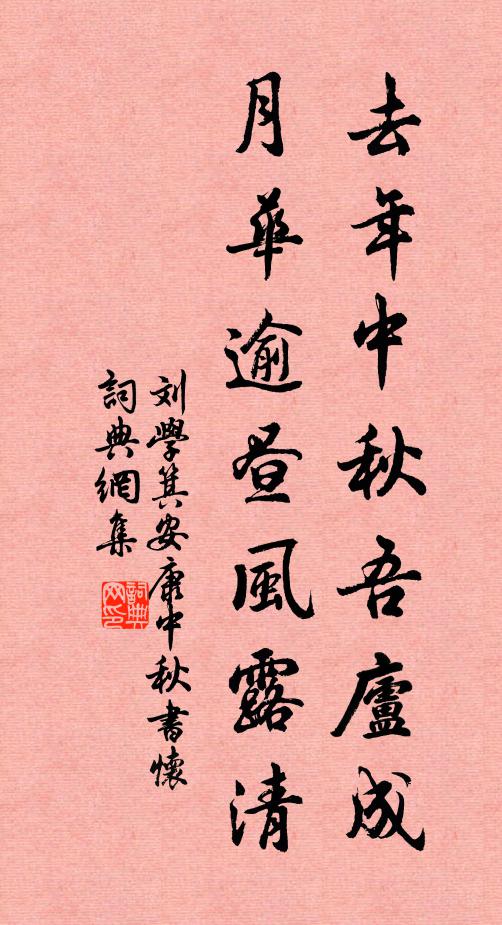 去年中秋吾廬成
月華逾昼風露清
刘學箕安康中秋書懷
詞典網集
詞典网印